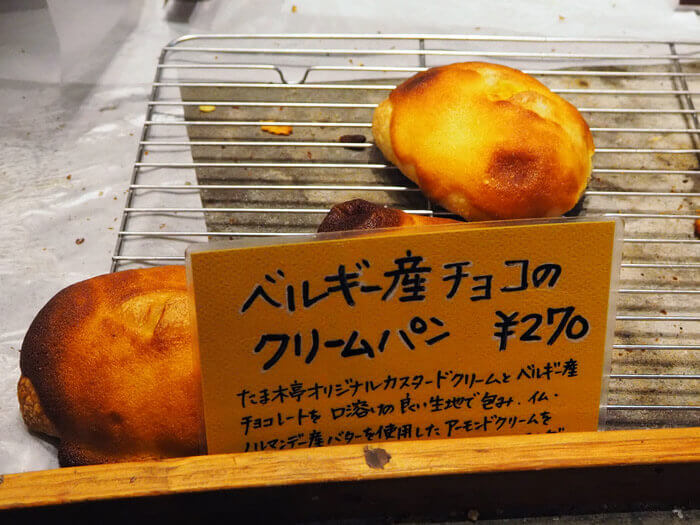 ベルギー産チョコの
クリームパン ¥270
たま木亭オリジナルカスタードクリームとベルギー産
チョコレートを口溶けの良い生地で包み、イム・
ノルマンデー産バターを使用したアーモンドクリームを